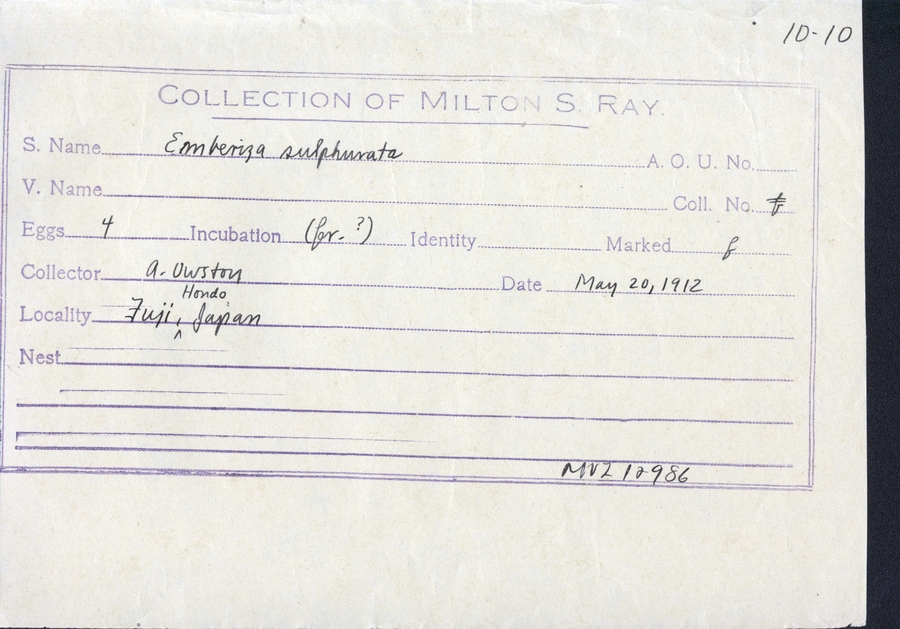 10-10
COLLECTION OF MILTON S. RAY.
S. Name Emberiza sulphurata A. O. U. No.
V. Name Coll. No.
Eggs 4 Incubation (fr. ?) Identity Marked f
Collector A. Owston Date May 20, 1912
Hondo
Locality Fuji, ^ Japan
Nest
MVZ 12986